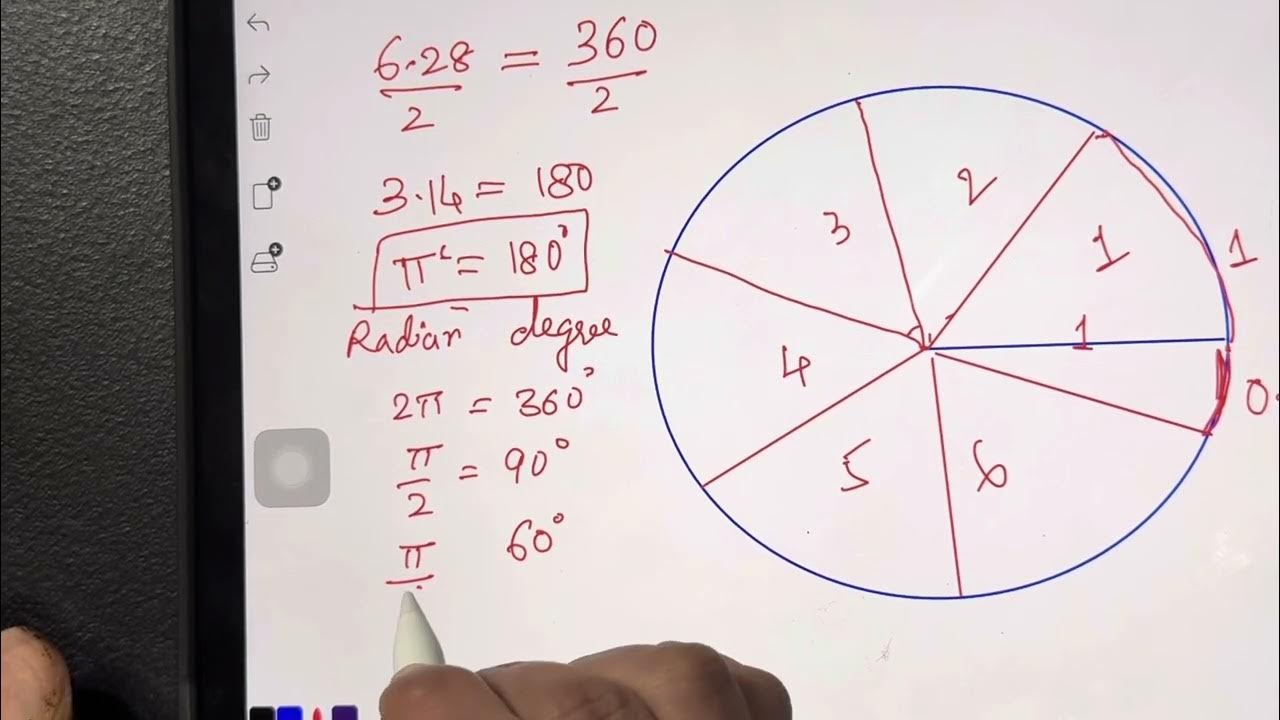 6.28/2 = 360/2
3.14 = 180
π^c = 180°
Radian degree
2π = 360°
π/2 = 90°
π/ 60°
3
2
1
1
1
4
5
6
0.